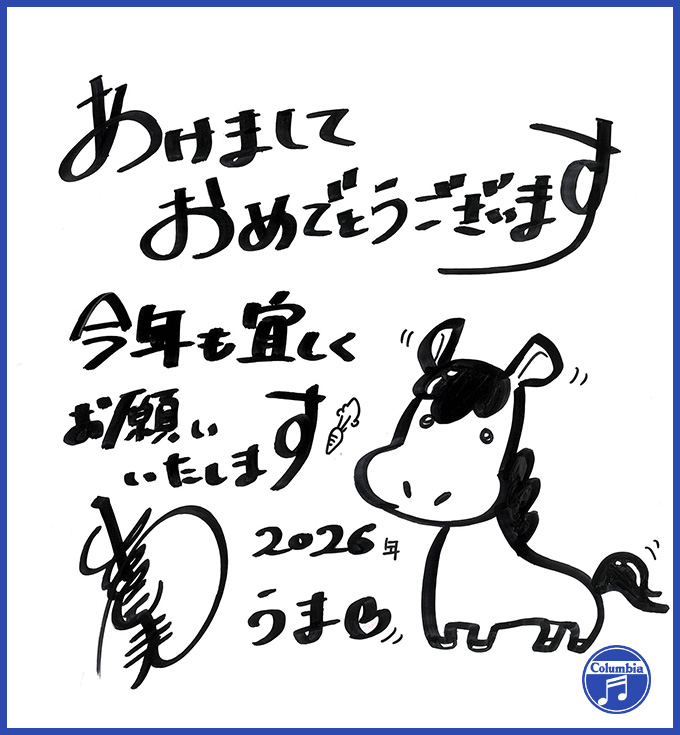 あけまして
おめでとうございます
今年も宜しく
お願い
いたします
2026年
うま
Columbia